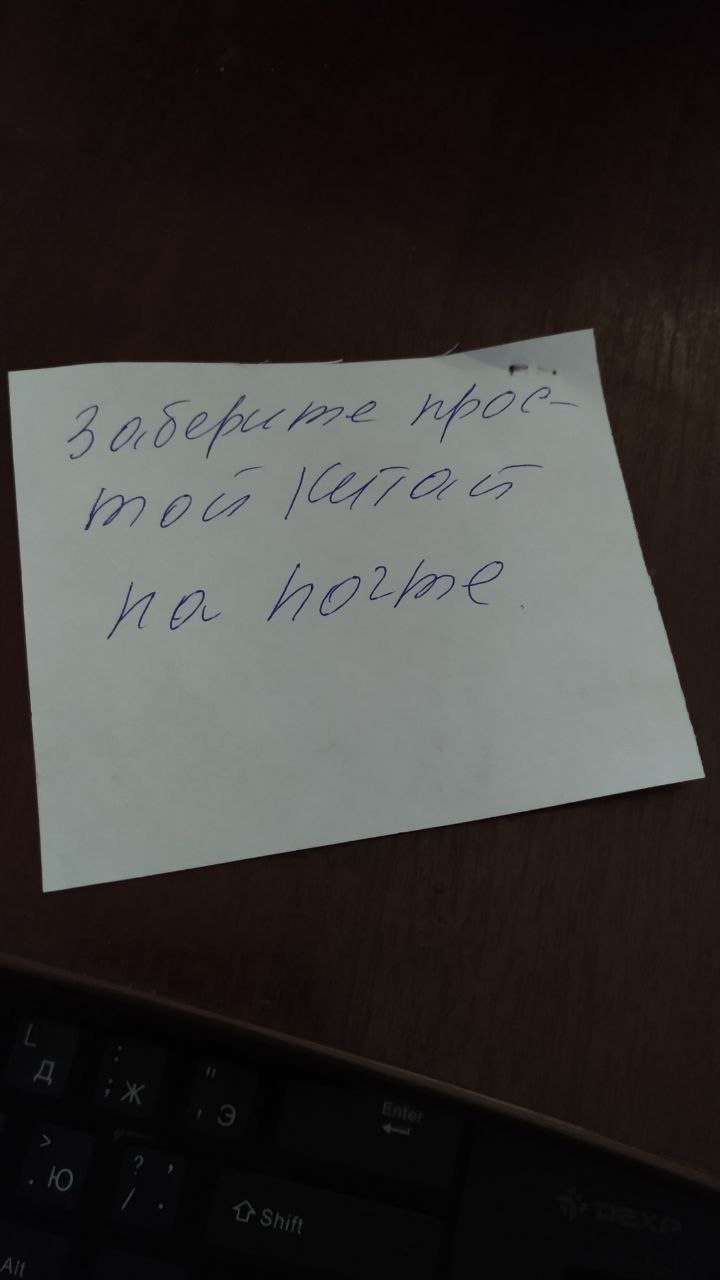 Заберите прос-
той Китай
на почте.
L
Д
:
; Ж
"
' Э
Enter
>
. Ю
? ,
/ .
Shift
DEXP
Alt